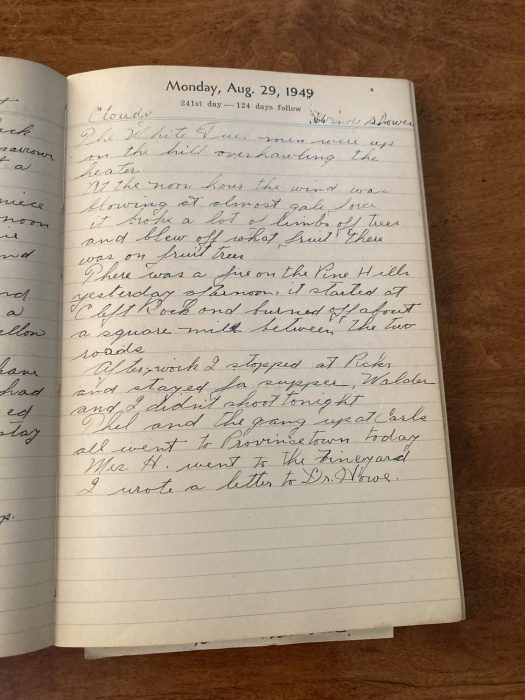 Monday, Aug. 29, 1949
241st day — 124 days follow
Cloudy Wind & Shower
The White Fuel men were up
on the hill overhauling the
heater
At the noon hour the wind was
blowing at almost gale force
it broke a lot of limbs off trees
and blew off what fruit there
was on fruit trees
There was a fire on the Pine Hills
yesterday afternoon, it started at
Cleft Rock and burned off about
a square mile between the two
roads
After work I stopped at Picks
and stayed for supper, Walder
and I didn't shoot tonight
Phil and the gang up at Carls
all went to Provincetown today
Mrs H. went to the Vineyard
I wrote a letter to Dr. Howe.
a
piece
noon
nd
a
have
had
ed
stay